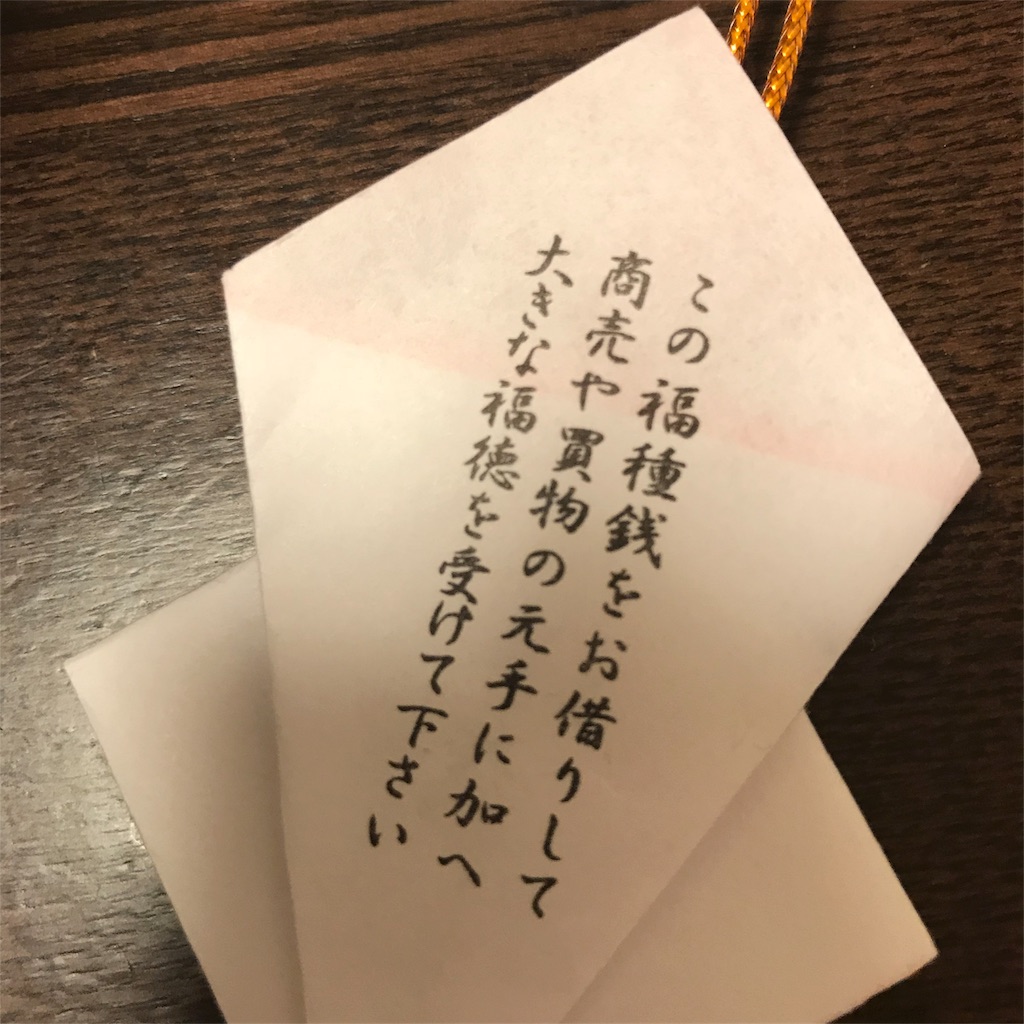 この福種銭をお借りして
商売や買物の元手に加へ
大きな福徳を受けて下さい